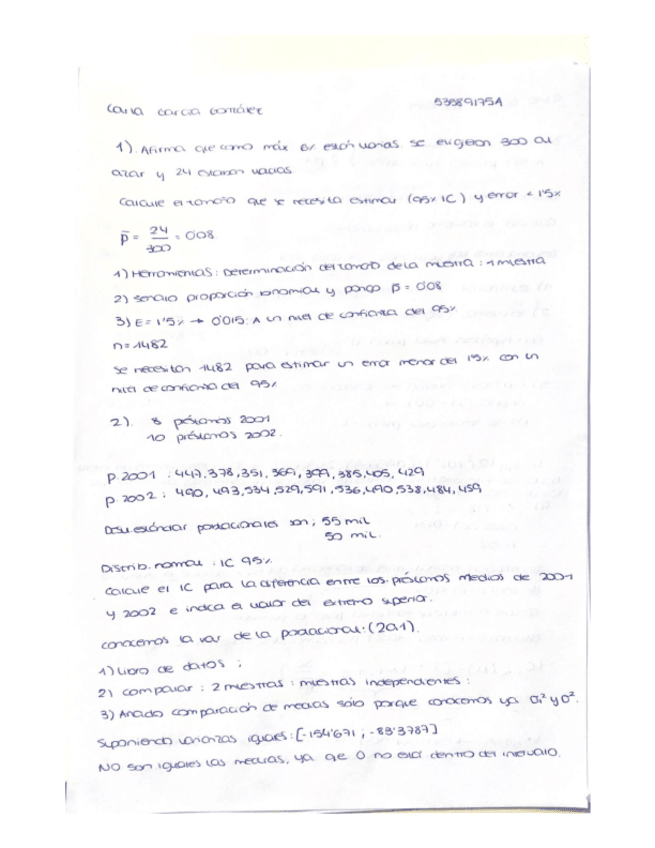 Carla Garcia González 53589175A
1). Afirma que como máx 6% están vacías. Se eligieron 300 al
azar y 24 estaban vacías.
Calcule el tamaño que se necesita estimar (95% IC) y error < 1'5%
p̄ = 24/300 = 0'08.
1) Herramientas: Determinación del tamaño de la muestra: 1 muestra
2) Señalo proporción binomial y pongo p̄ = 0'08
3) E = 1'5% → 0'015. A un nivel de confianza del 95%
n = 1482
Se necesitan 1482 para estimar un error menor del 15% con un
nivel de confianza del 95%
2). 8 préstamos 2001
10 préstamos 2002.
p 2001 : 447, 378, 351, 369, 399, 385, 405, 429
p 2002 : 490, 493, 534, 529, 591, 536, 490, 538, 484, 459
Desv. estándar poblacionales son; 55 mil
50 mil.
Distrib. normal : IC 95%
Calcule el IC para la diferencia entre los préstamos medios de 2001
y 2002 e indica el valor del extremo superior.
conocemos la var de la poblacional: (2a1).
1) Libro de datos ;
2) comparar : 2 muestras : muestras independientes :
3) Añado comparación de medias sólo porque conocemos ya σ₁² y σ².
Suponiendo varianzas iguales : [-154'671 ; -83'3787]
NO son iguales las medias, ya que 0 no está dentro del intervalo.